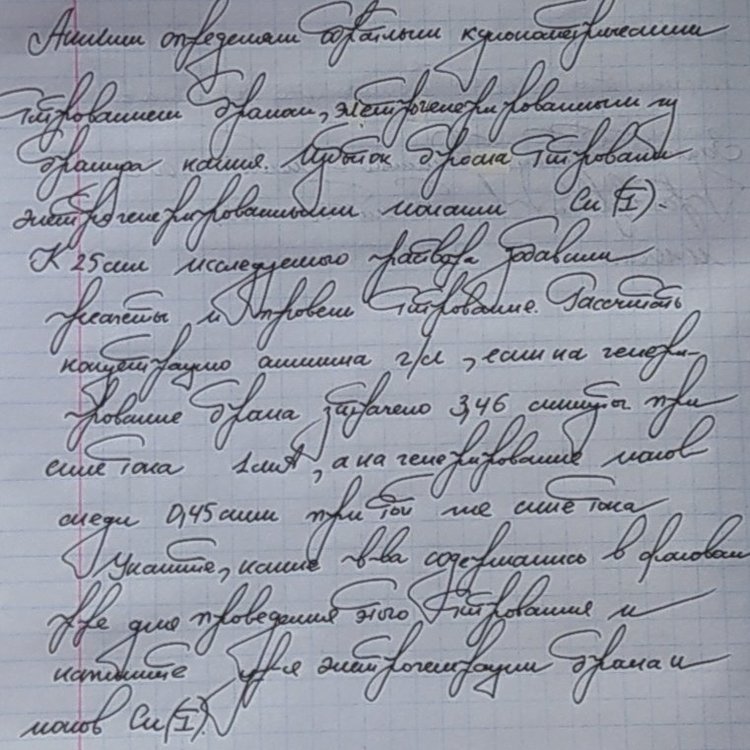 Анилин определяли обратным кулонометрическим
титрованием бромом, электрогенерированным из
бромида калия. Избыток брома титровали
электрогенерированными ионами Cu(I).
К 25 мл исследуемого раствора добавили
реагенты и провели титрование. Рассчитать
концентрацию анилина г/л, если на генери-
рование брома затрачено 3,46 минуты при
силе тока 1 мА, а на генерирование ионов
меди 0,45 мин при той же силе тока
Укажите, какие в-ва содержались в фоновом
р-ре для проведения этого титрования и
напишите ур-я электрогенерации брома и
ионов Cu(I).